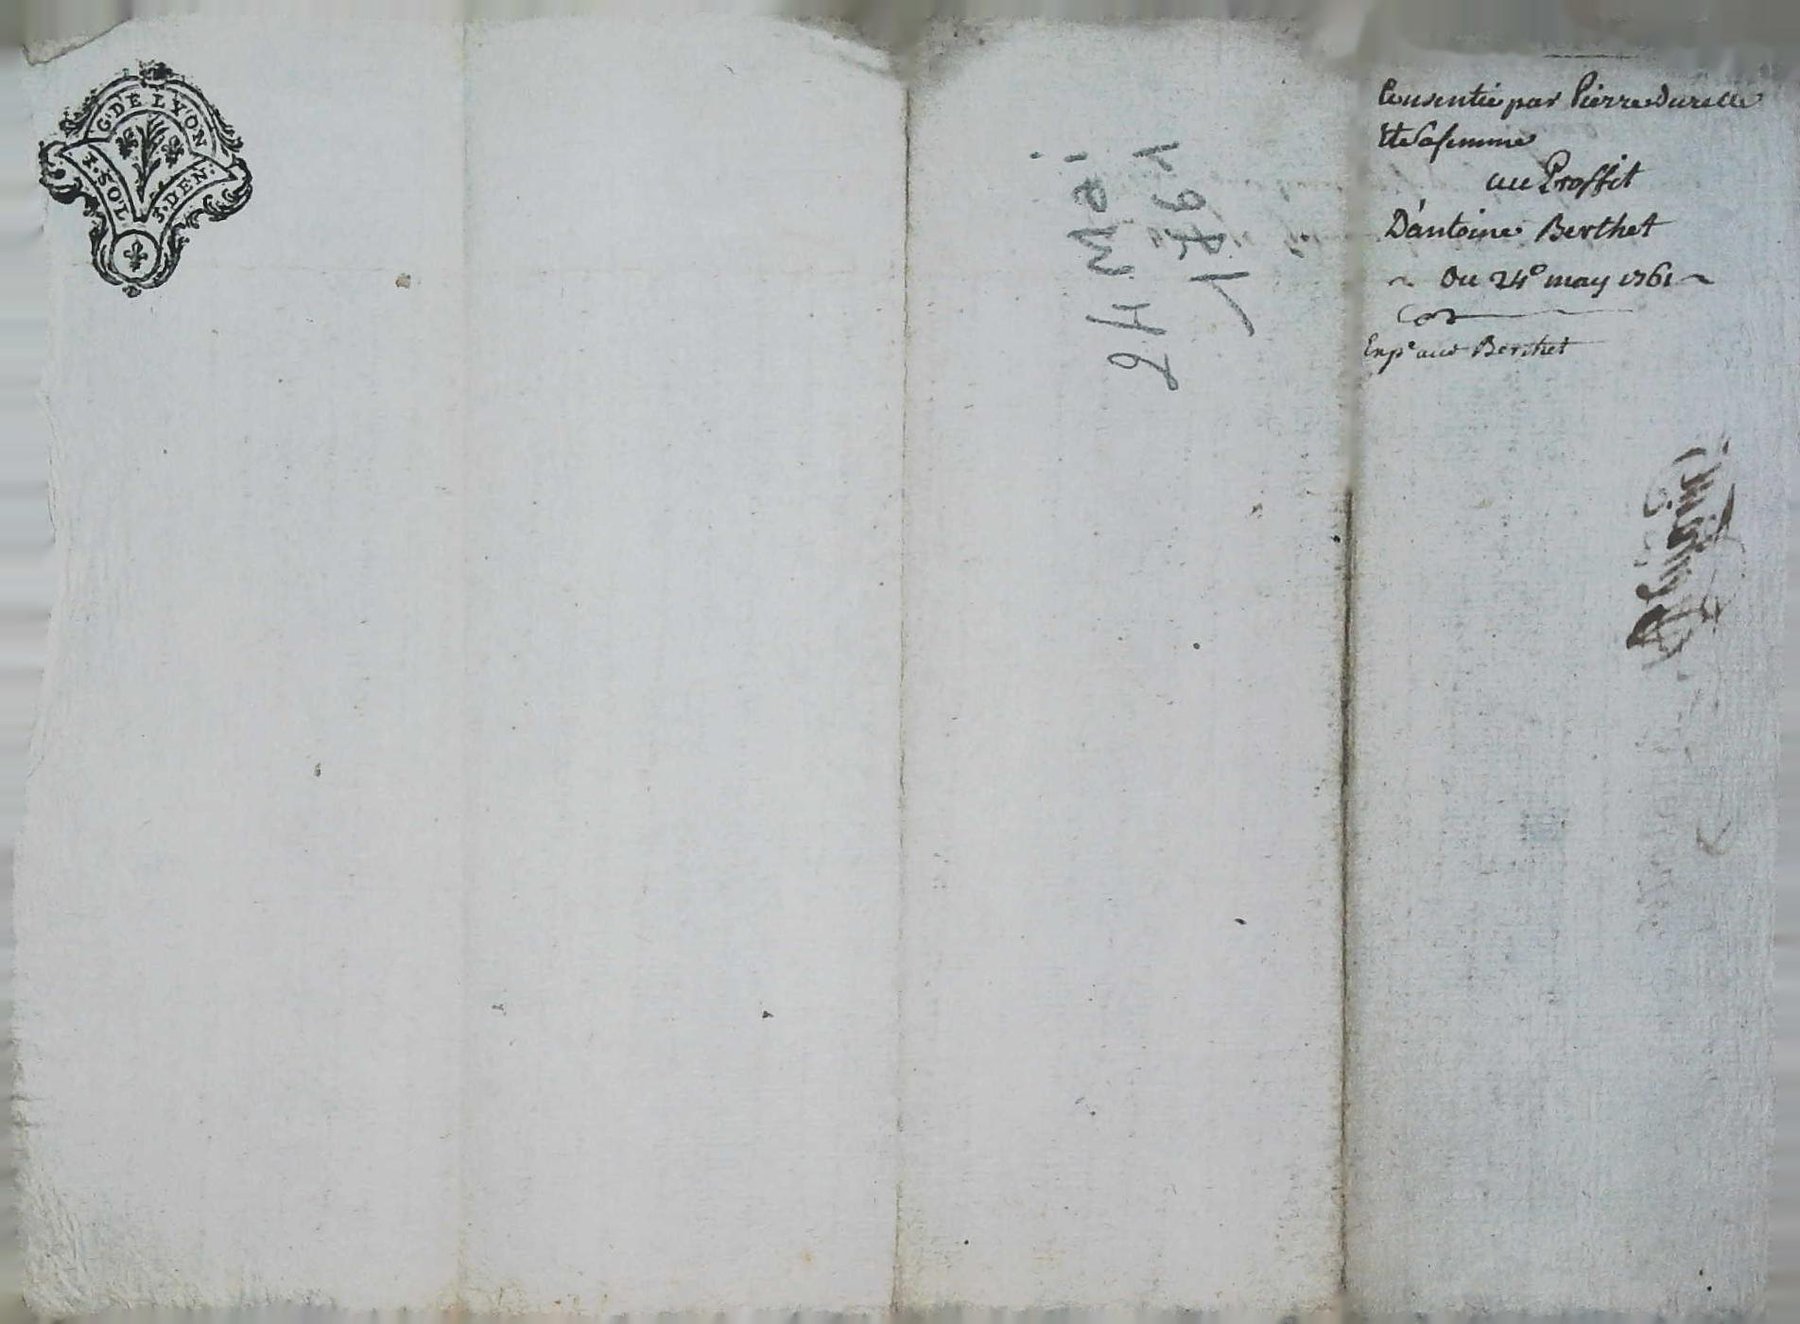 G. DE LYON
1. SOL 3. DEN.
24 Mai
1761
Consentie par Pierre Durelle
Et Sa femme
au Proffit
D'antoine Berthet
~ Du 24e may 1761 ~
Exp.e aud Berthet